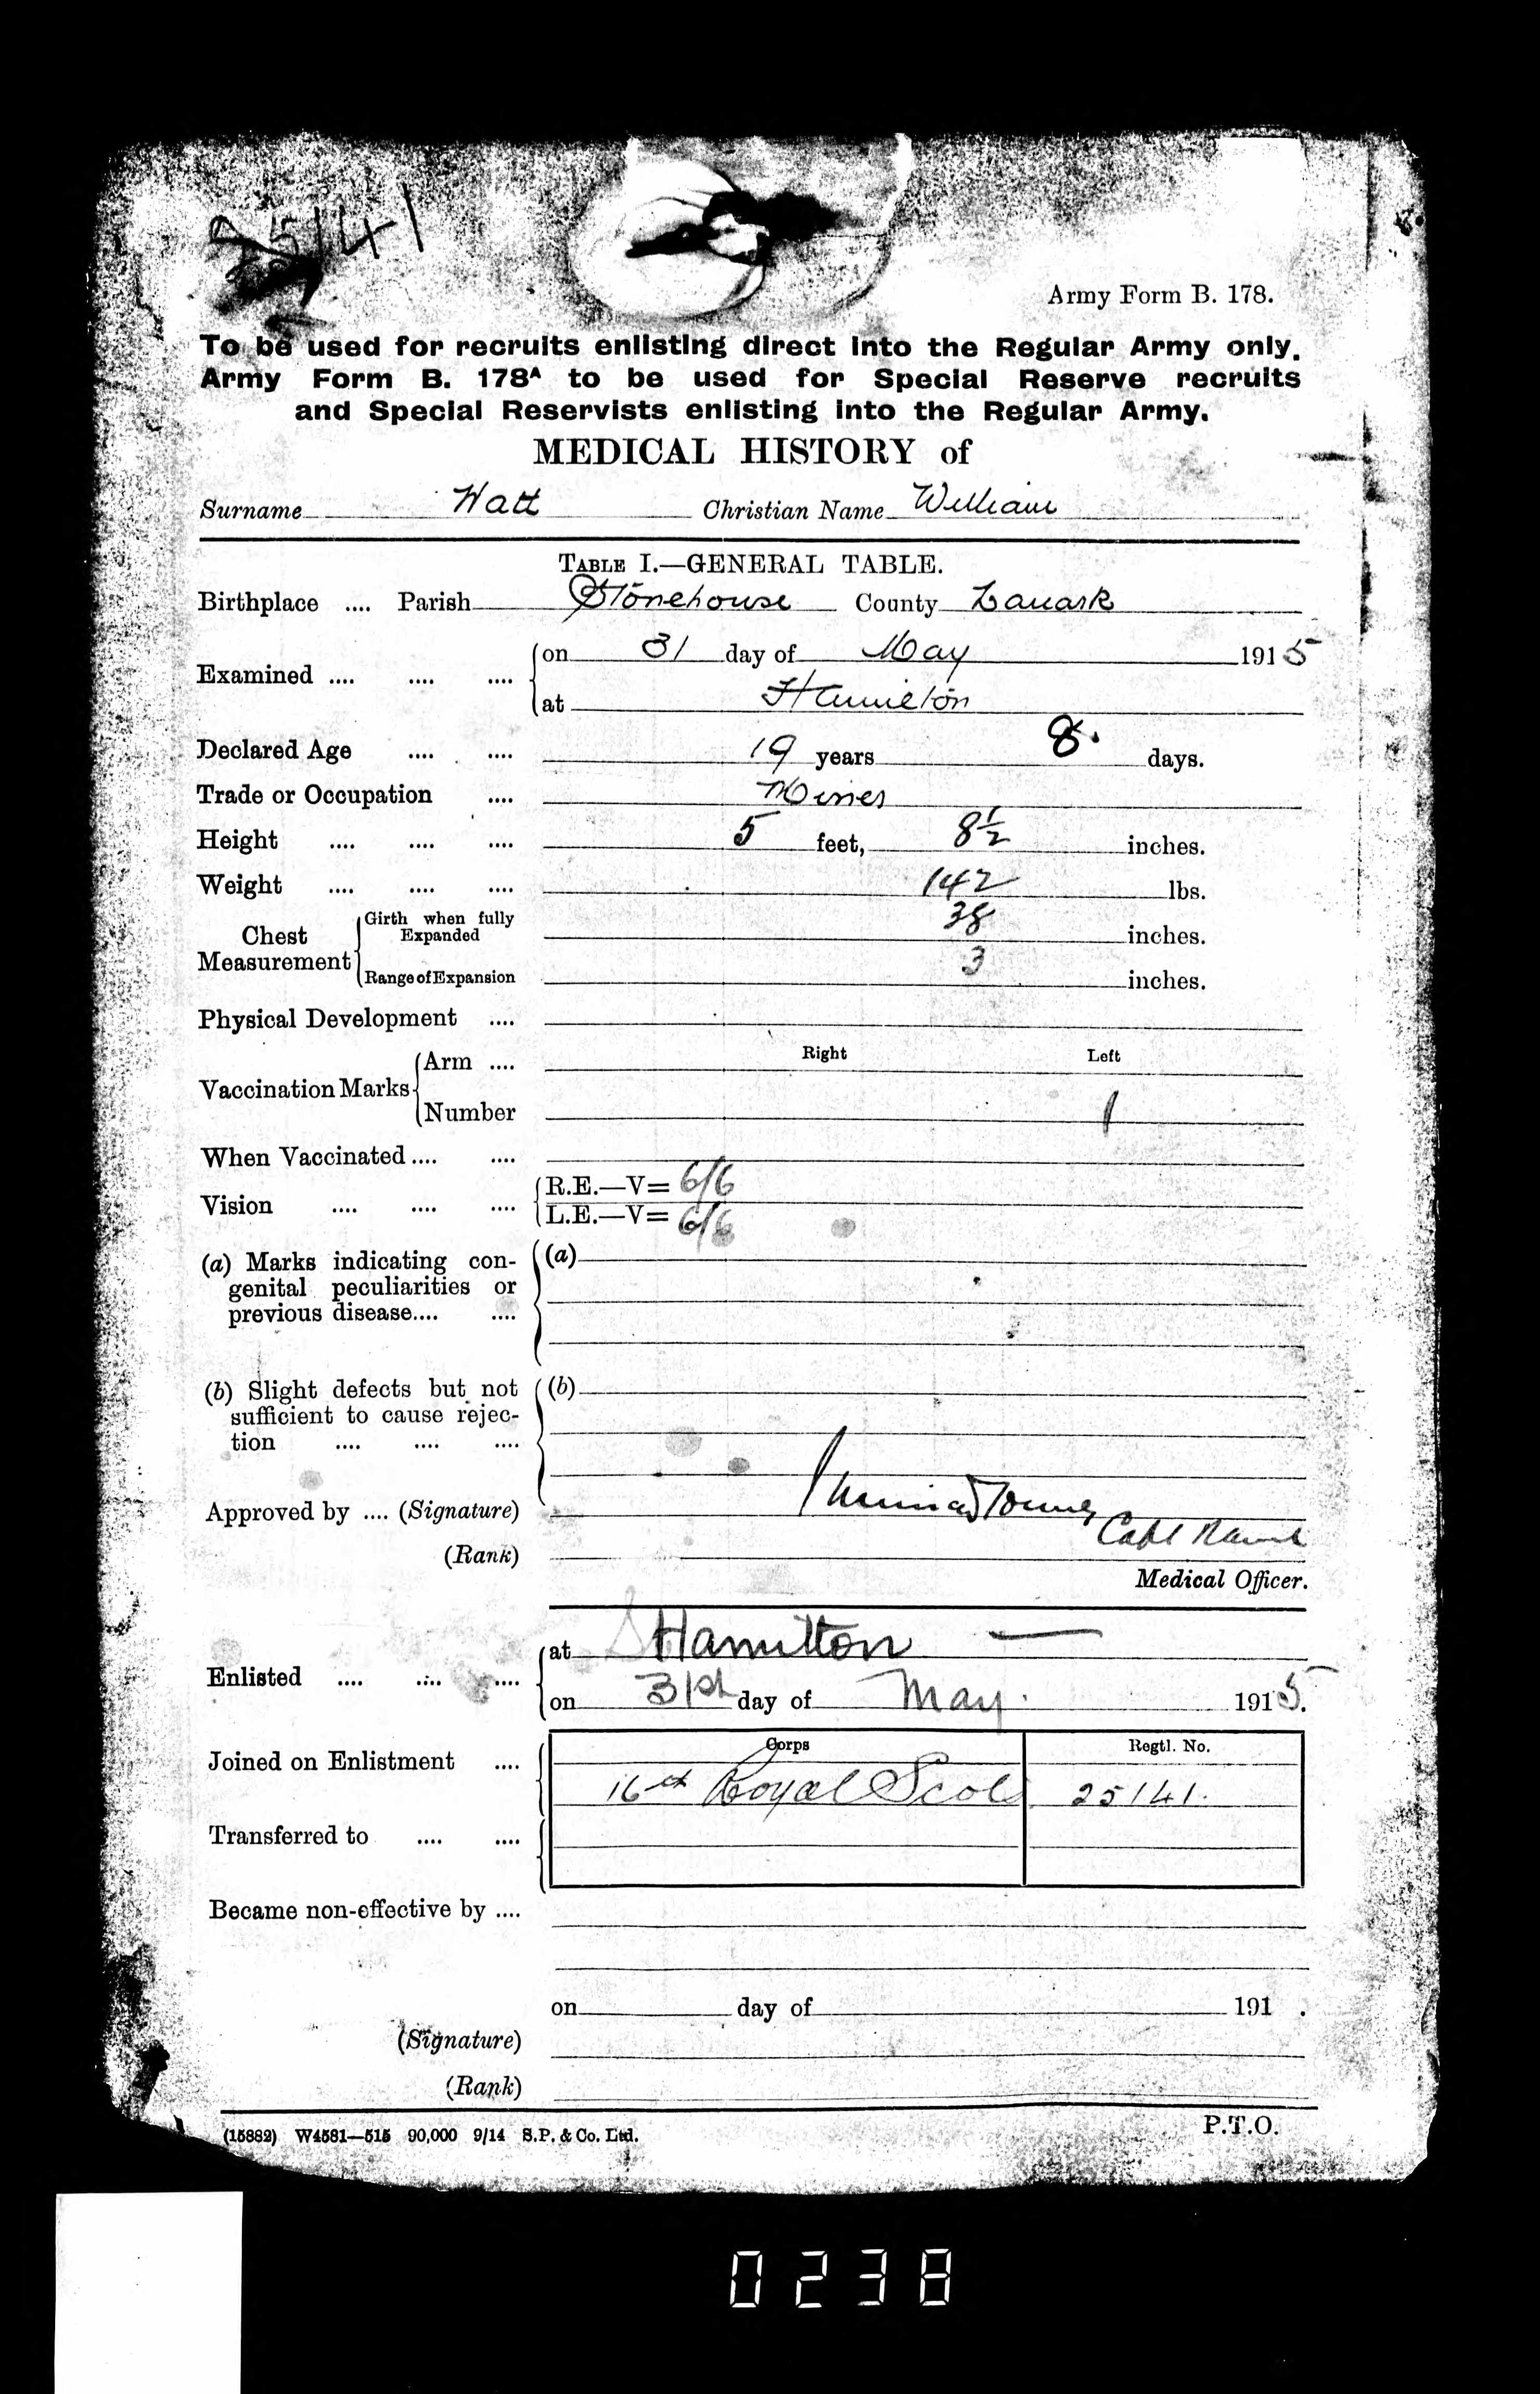 25141
Army Form B. 178.
To be used for recruits enlisting direct into the Regular Army only.
Army Form B. 178A to be used for Special Reserve recruits
and Special Reservists enlisting into the Regular Army.
MEDICAL HISTORY of
Surname Watt Christian Name William
TABLE I.—GENERAL TABLE.
Birthplace .... Parish Stonehouse County Lanark
Examined .... .... .... on 31 day of May 1915
at Hamilton
Declared Age .... .... 19 years 8. days.
Trade or Occupation .... Miner
Height .... .... .... 5 feet, 8½ inches.
Weight .... .... .... 142 lbs.
Chest Measurement Girth when fully Expanded 38 inches.
Range of Expansion 3 inches.
Physical Development ....
Right Left
Vaccination Marks Arm ....
Number 1
When Vaccinated .... ....
Vision .... .... .... R.E.—V= 6/6
L.E.—V= 6/6
(a) Marks indicating con- (a)
genital peculiarities or
previous disease.... ....
(b) Slight defects but not (b)
sufficient to cause rejec-
tion .... .... ....
Approved by .... (Signature)
Capt
(Rank)
Medical Officer.
Enlisted .... .... .... at Hamilton
on 31st day of May. 1915.
Corps Regtl. No.
Joined on Enlistment .... 16th Royal Scots 25141.
Transferred to .... ....
Became non-effective by ....
on day of 191 .
(Signature)
(Rank)
P.T.O.
(15882) W4581—515 90,000 9/14 S.P. & Co. Ltd.
0238